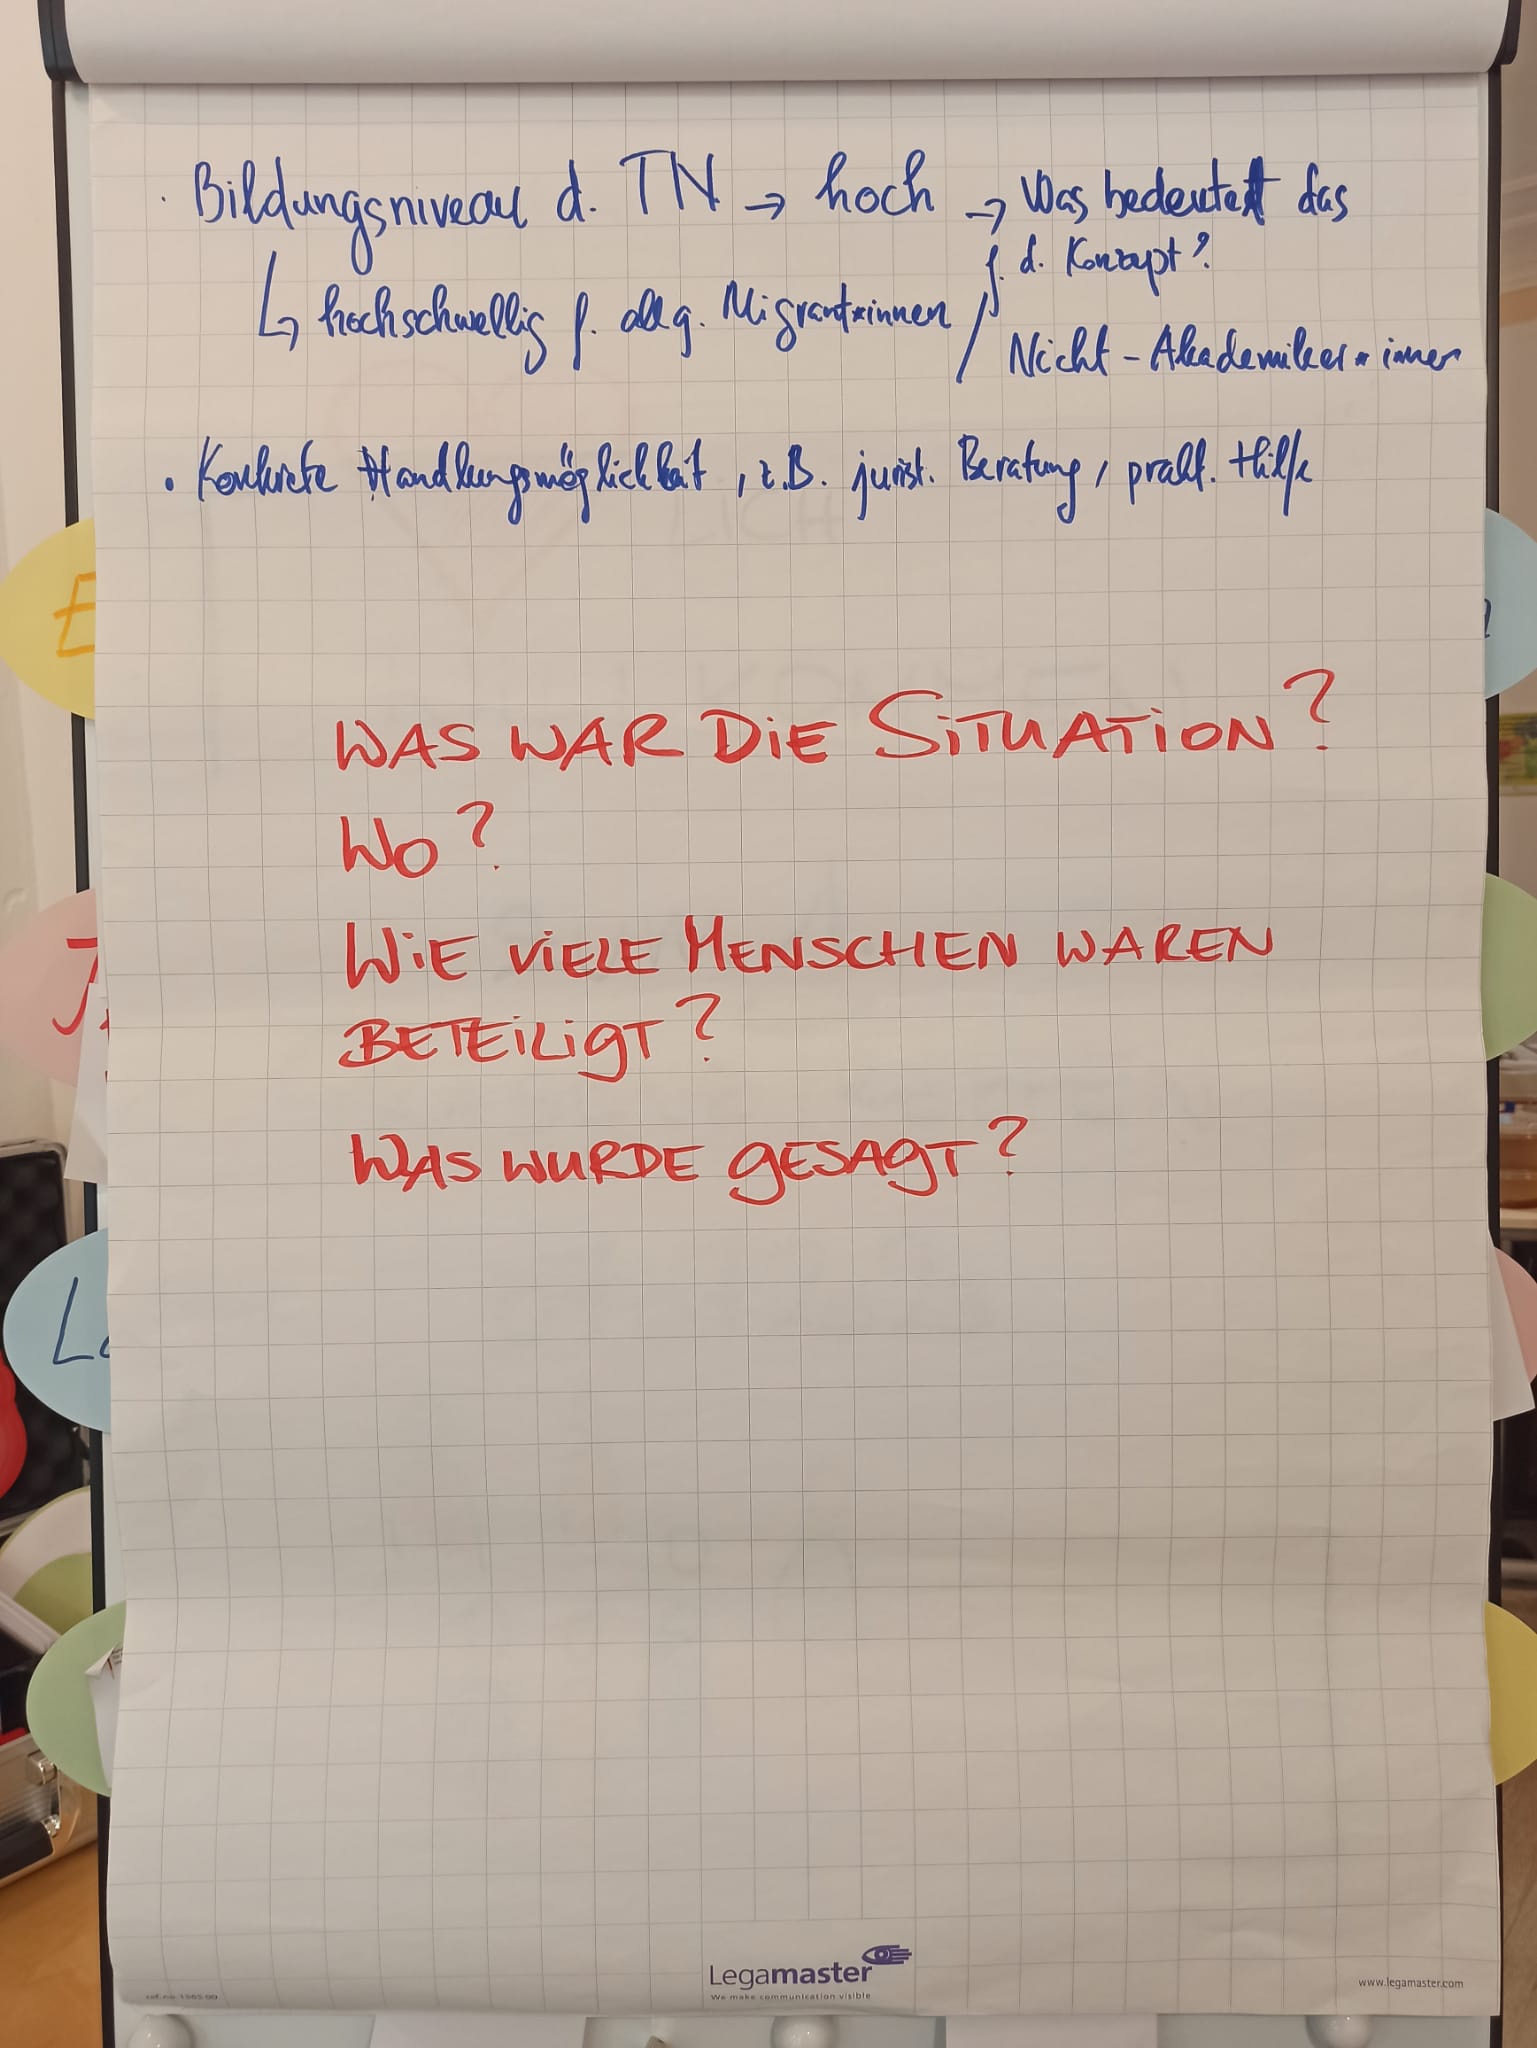 · Bildungsniveau d. TN → hoch → Was bedeutet das
f. d. Konzept?
↳ hochschwellig f. allg. Migrant*innen /
Nicht-Akademiker*innen
· Konkrete Handlungsmöglichkeit, z.B. jurist. Beratung, prakt. Hilfe
WAS WAR DIE SITUATION?
WO?
WIE VIELE MENSCHEN WAREN
BETEILIGT?
WAS WURDE GESAGT?
Legamaster
We make communication visible
www.legamaster.com